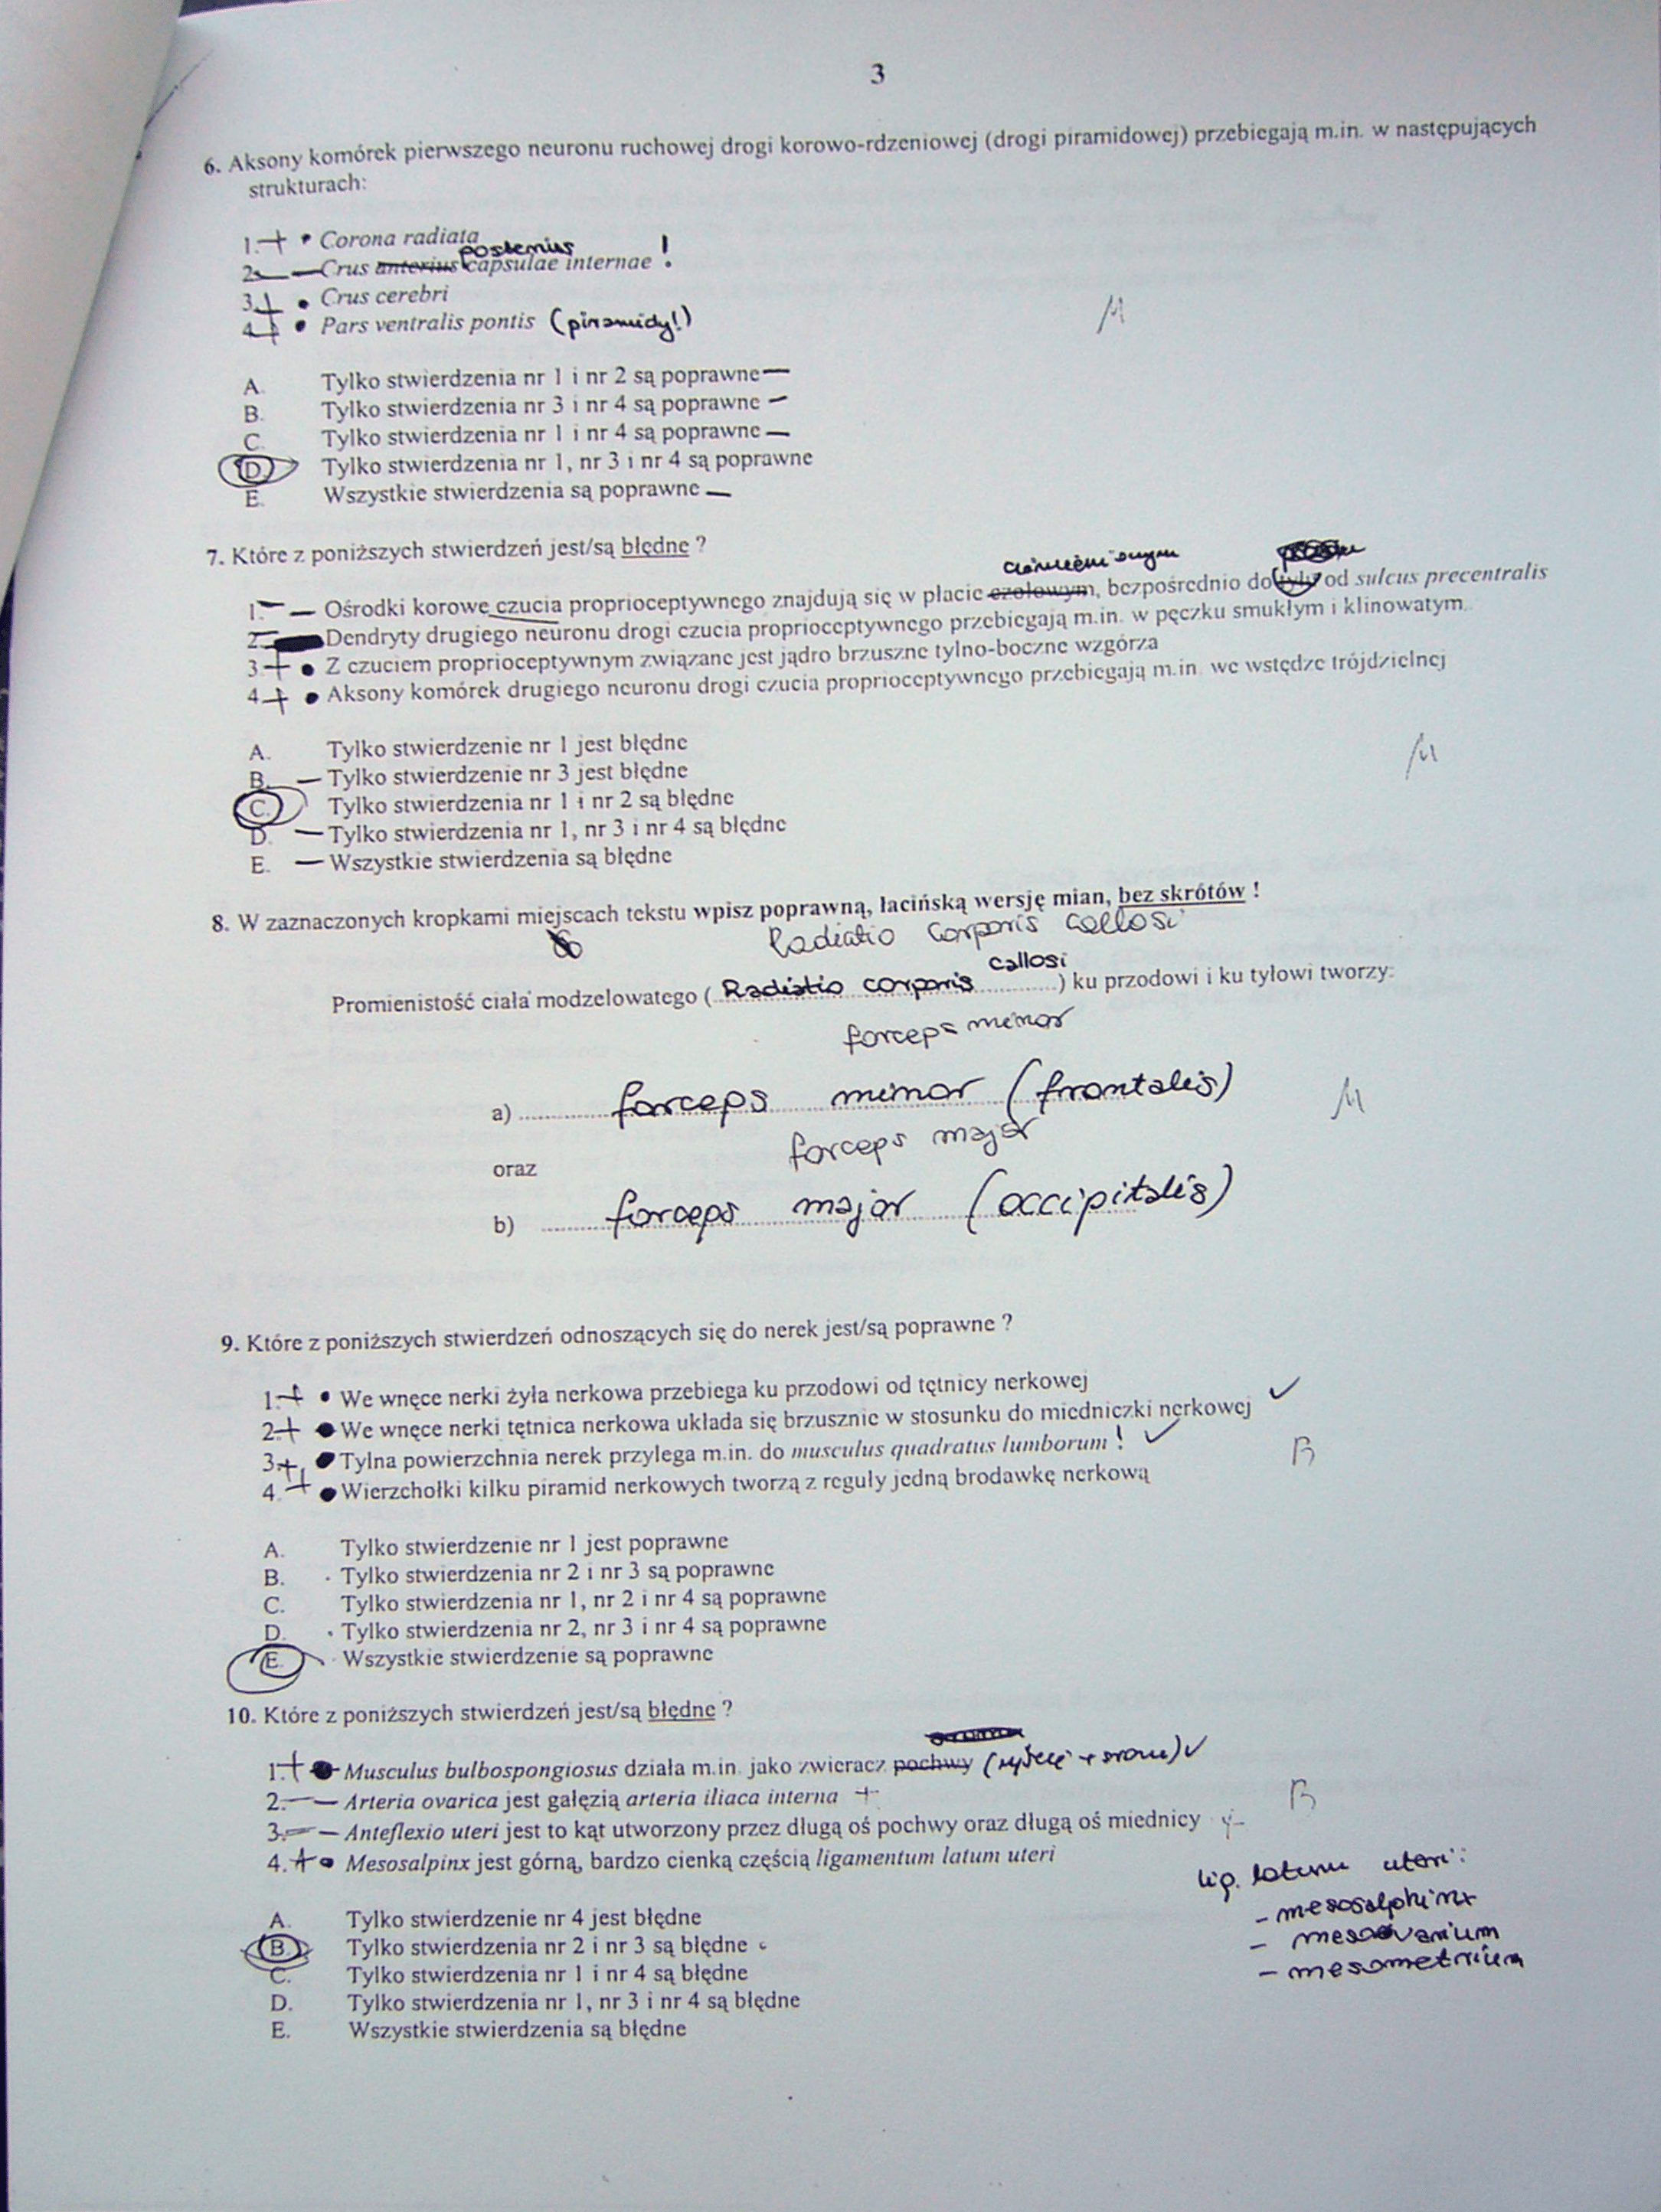 3
6. Aksony komórek pierwszego neuronu ruchowej drogi korowo-rdzeniowej (drogi piramidowej) przebiegają m.in. w następujących
strukturach:
1. + • Corona radiata
posterius !
2. — Crus anterius capsulae internae
3. + • Crus cerebri
4. + • Pars ventralis pontis (piramidy!)
M
A. Tylko stwierdzenia nr 1 i nr 2 są poprawne —
B. Tylko stwierdzenia nr 3 i nr 4 są poprawne —
C. Tylko stwierdzenia nr 1 i nr 4 są poprawne —
D. Tylko stwierdzenia nr 1, nr 3 i nr 4 są poprawne
E. Wszystkie stwierdzenia są poprawne —
7. Które z poniższych stwierdzeń jest/są błędne ?
1. — Ośrodki korowe czucia proprioceptywnego znajdują się w płacie czołowym, bezpośrednio do tyłu od sulcus precentralis
2. Dendryty drugiego neuronu drogi czucia proprioceptywnego przebiegają m.in. w pęczku smukłym i klinowatym
3 + • Z czuciem proprioceptywnym związane jest jądro brzuszne tylno-boczne wzgórza
4. + • Aksony komórek drugiego neuronu drogi czucia proprioceptywnego przebiegają m.in. we wstędze trójdzielnej
A. Tylko stwierdzenie nr 1 jest błędne
B. — Tylko stwierdzenie nr 3 jest błędne
M
C. Tylko stwierdzenia nr 1 i nr 2 są błędne
D. — Tylko stwierdzenia nr 1, nr 3 i nr 4 są błędne
E. — Wszystkie stwierdzenia są błędne
8. W zaznaczonych kropkami miejscach tekstu wpisz poprawną, łacińską wersję mian, bez skrótów !
Radiatio corporis callosi
callosi
Promienistość ciała modzelowatego ( Radiatio corporis ) ku przodowi i ku tyłowi tworzy:
forceps minor
a) forceps minor (frontalis)
M
forceps major
oraz
b) forceps major (occipitalis)
9. Które z poniższych stwierdzeń odnoszących się do nerek jest/są poprawne ?
1. + • We wnęce nerki żyła nerkowa przebiega ku przodowi od tętnicy nerkowej
2. + • We wnęce nerki tętnica nerkowa układa się brzusznie w stosunku do miedniczki nerkowej ✓
3. + • Tylna powierzchnia nerek przylega m.in. do musculus quadratus lumborum ! ✓
B
4. + • Wierzchołki kilku piramid nerkowych tworzą z reguły jedną brodawkę nerkową
A. Tylko stwierdzenie nr 1 jest poprawne
B. Tylko stwierdzenia nr 2 i nr 3 są poprawne
C. Tylko stwierdzenia nr 1, nr 2 i nr 4 są poprawne
D. Tylko stwierdzenia nr 2, nr 3 i nr 4 są poprawne
E. Wszystkie stwierdzenie są poprawne
10. Które z poniższych stwierdzeń jest/są błędne ?
1. + • Musculus bulbospongiosus działa m.in. jako zwieracz pochwy ✓
2. — Arteria ovarica jest gałęzią arteria iliaca interna +
B
3. — Anteflexio uteri jest to kąt utworzony przez długą oś pochwy oraz długą oś miednicy
4. + • Mesosalpinx jest górną, bardzo cienką częścią ligamentum latum uteri
lig. latum uteri:
- mesosalphinx
- mesovarium
- mesometrium
A. Tylko stwierdzenie nr 4 jest błędne
B. Tylko stwierdzenia nr 2 i nr 3 są błędne
C. Tylko stwierdzenia nr 1 i nr 4 są błędne
D. Tylko stwierdzenia nr 1, nr 3 i nr 4 są błędne
E. Wszystkie stwierdzenia są błędne